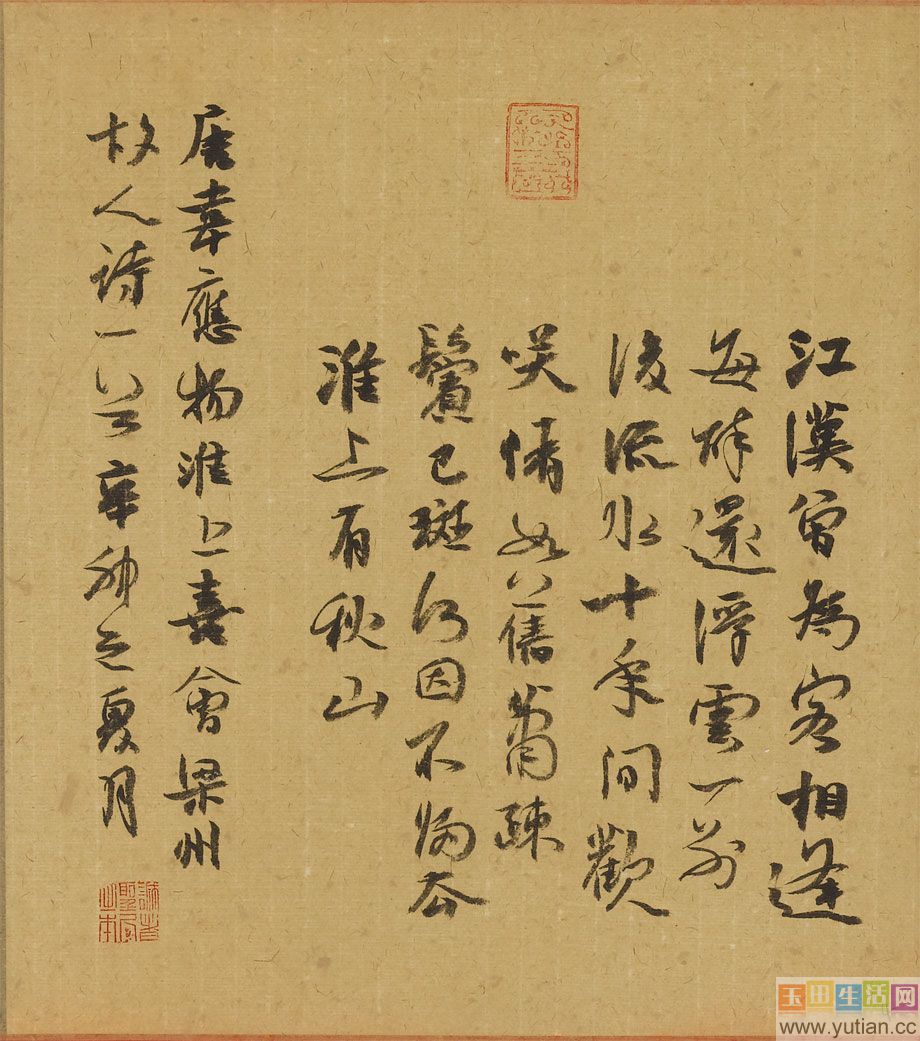 江漢曾為客相逢
每醉還浮雲一別
後流水十年間歡
咲情如舊蕭疎
鬢已斑何因不歸去
淮上有秋山
唐韋應物淮上喜會梁州
故人詩一首辛卯之夏月
玉田生活网
www.yutian.cc